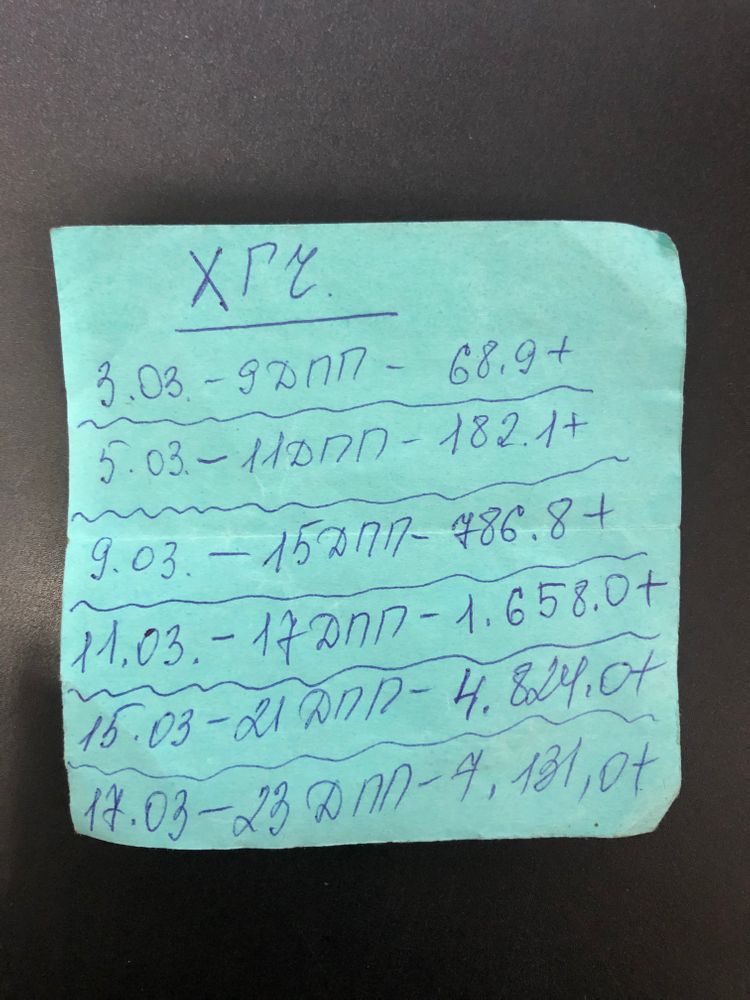 ХГЧ.
3.03. - 9ДПП - 68.9+
5.03. - 11ДПП - 182.1+
9.03. - 15ДПП - 786.8+
11.03. - 17ДПП - 1.658.0+
15.03 - 21ДПП - 4.824.0+
17.03 - 23ДПП - 7.131,0+